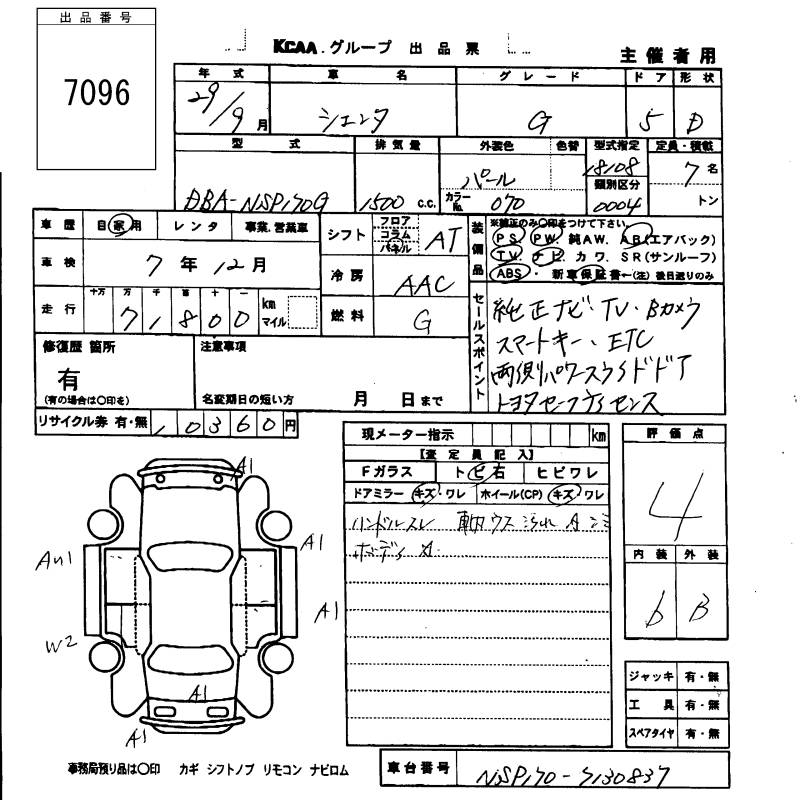 出品番号
7096
KCAA.グループ 出品票
主催者用
年式 車名 グレード ドア 形状
29/9月 シエンタ G 5 D
型式 排気量 外装色 色替 型式指定 定員・積載
DBA-NSP170G 1500 c.c. パール 18108 7名
カラーNo. 070 類別区分 0004 トン
車歴 自家用 レンタ 事業.営業車
シフト フロア コラム パネル AT
装備品 ※純正のみ○印をつけて下さい。
PS. PW. 純AW. AB(エアバック)
TV. ナビ. カワ. SR(サンルーフ)
ABS・新車保証書←(注)後日送りのみ
車検 7年12月
冷房 AAC
走行 十万 万 千 百 十 一
71800 km マイル
燃料 G
セールスポイント
純正ナビ・TV・Bカメラ
スマートキー・ETC
両側パワースライドドア
トヨタセーフティセンス
修復歴 箇所
有
(有の場合は○印を)
注意事項
名変期日の短い方 月 日まで
リサイクル券 有・無 10360円
現メーター指示 km
【査定員記入】
Fガラス トビ石 ヒビワレ
ドアミラー キズ・ワレ ホイール(CP) キズ・ワレ
ハンドルスレ 車内ウス汚れ A シミ
ボディ A
評価点
4
内装 外装
b B
A1
A1
AU1
A1
W2
A1
A1
ジャッキ 有・無
工具 有・無
スペアタイヤ 有・無
事務局預り品は○印 カギ シフトノブ リモコン ナビロム
車台番号 NSP170-7130837